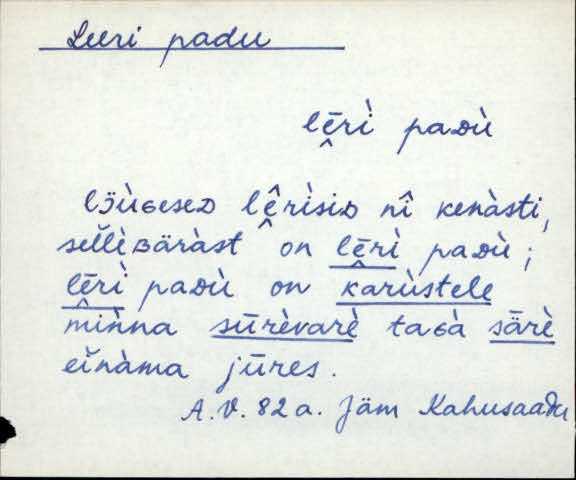 Leeri padu
lē̬rì paᴅù
lɜ̈ùɢeseᴅ lê̬rìsiᴅ nî kenàsti,
sel̆lèʙäràst on lē̬rì paᴅù;
lē̬rì paᴅù on karùstele
minna sūrèvarè taɢà sārè
eĭnàma jūres.
A. V. 82 a. Jäm Kahusaadu